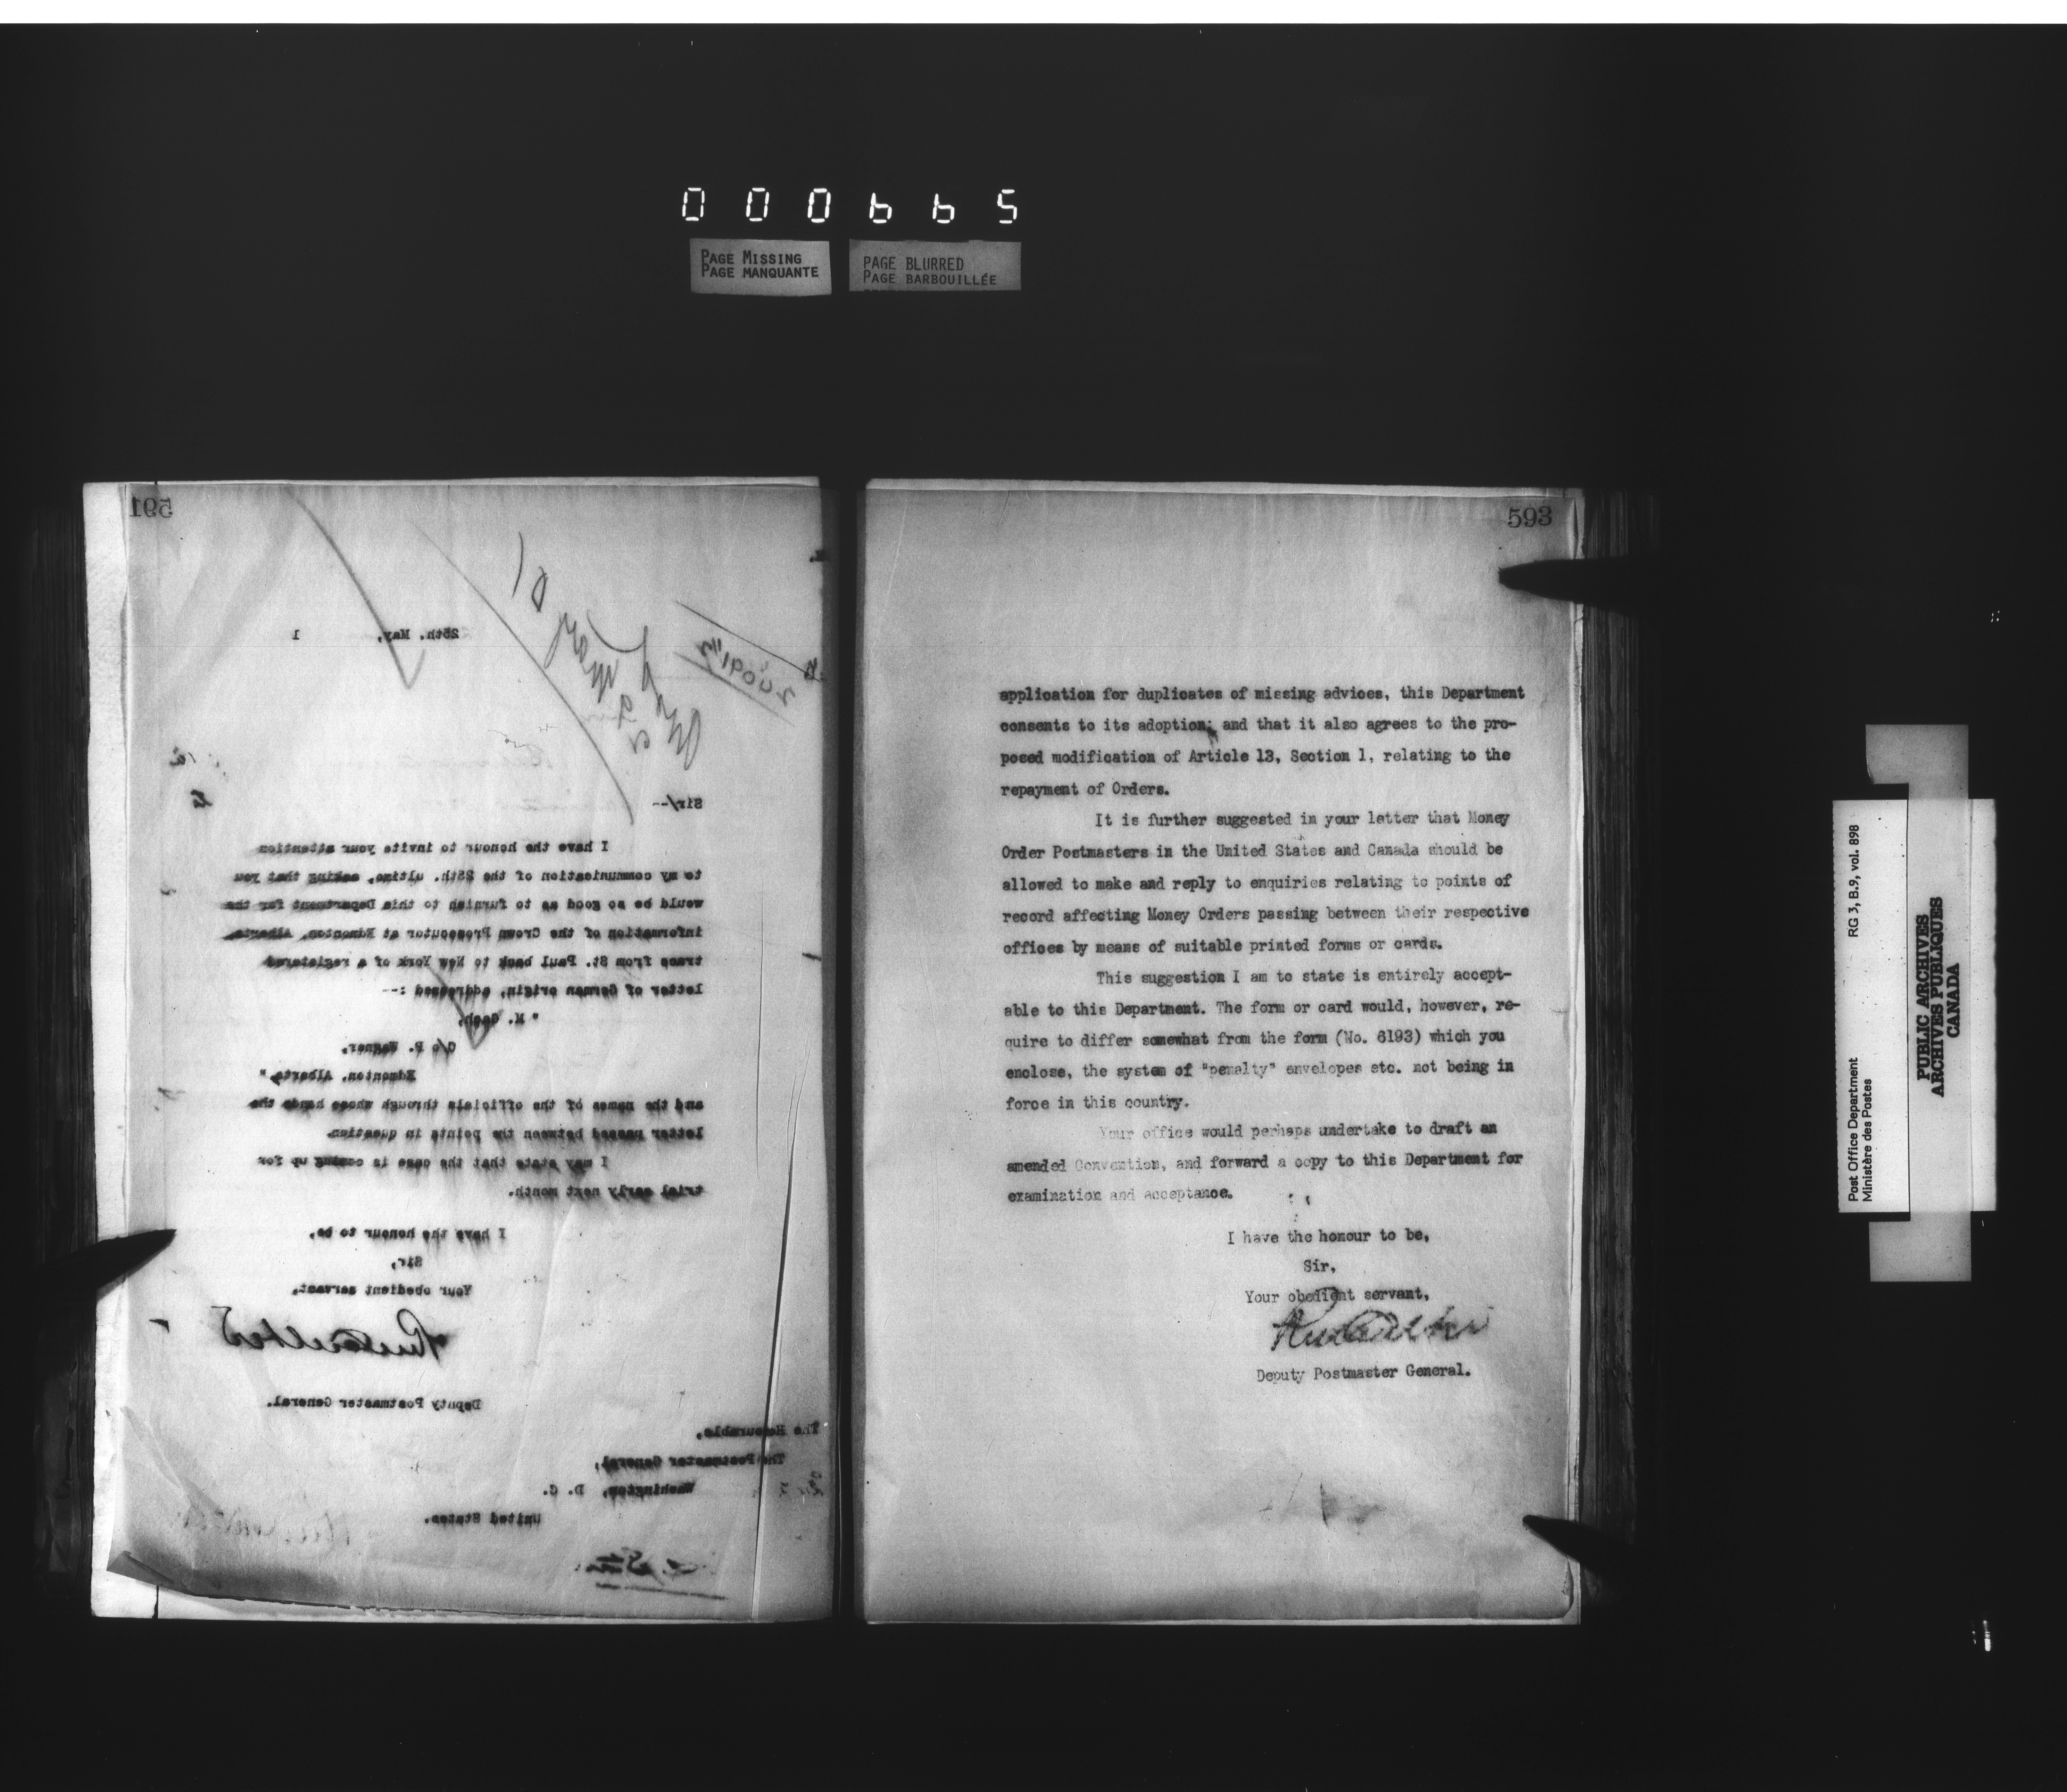 000665
PAGE MISSING
PAGE MANQUANTE
PAGE BLURRED
PAGE BARBOUILLÉE
591
25th. May, 1
Sir/--
I have the honour to invite your attention
to my communication of the 25th. ultimo, asking that you
would be so good as to furnish to this Department for the
information of the Crown Prosecutor at Edmonton, Alberta,
trace from St. Paul back to New York of a registered
letter of German origin, addressed :--
" M.
C/o P. Wagner,
Edmonton, Alberta,"
and the names of the officials through whose hands the
letter passed between the points in question.
I may state that the case is coming up for
trial early next month.
I have the honour to be,
Sir,
Your obedient servant,
Deputy Postmaster General.
The Honourable,
The Postmaster General,
Washington, D. C.
United States.
593
application for duplicates of missing advices, this Department
consents to its adoption; and that it also agrees to the pro-
posed modification of Article 13, Section 1, relating to the
repayment of Orders.
It is further suggested in your letter that Money
Order Postmasters in the United States and Canada should be
allowed to make and reply to enquiries relating to points of
record affecting Money Orders passing between their respective
offices by means of suitable printed forms or cards.
This suggestion I am to state is entirely accept-
able to this Department. The form or card would, however, re-
quire to differ somewhat from the form (No. 6193) which you
enclose, the system of "penalty" envelopes etc. not being in
force in this country.
Your office would perhaps undertake to draft an
amended Convention, and forward a copy to this Department for
examination and acceptance.
I have the honour to be,
Sir,
Your obedient servant,
Deputy Postmaster General.
Post Office Department RG 3, B.9, vol. 898
Ministère des Postes
PUBLIC ARCHIVES
ARCHIVES PUBLIQUES
CANADA